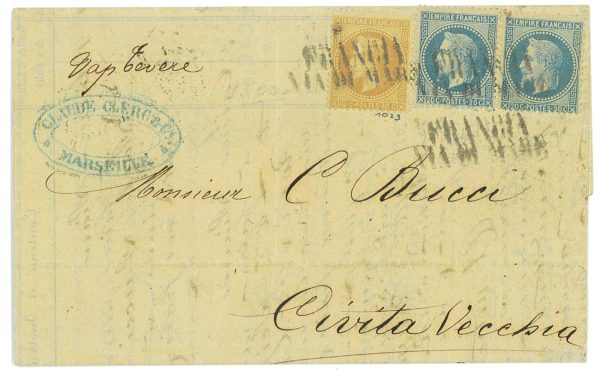 EMPIRE FRANÇAIS
10 C. POSTES 10 C.
EMPIRE FRANÇAIS
20 C. POSTES 20 C.
EMPIRE FRANÇAIS
20 C. POSTES 20 C.
FRANCIA
VIA DI MARE
FRANCIA
VIA DI MARE
FRANCIA
VIA DI MARE
1023
Vap Tevere
CLAUDE CLERC & Cie
MARSEILLE
Monsieur C. Bucci
Civita Vecchia